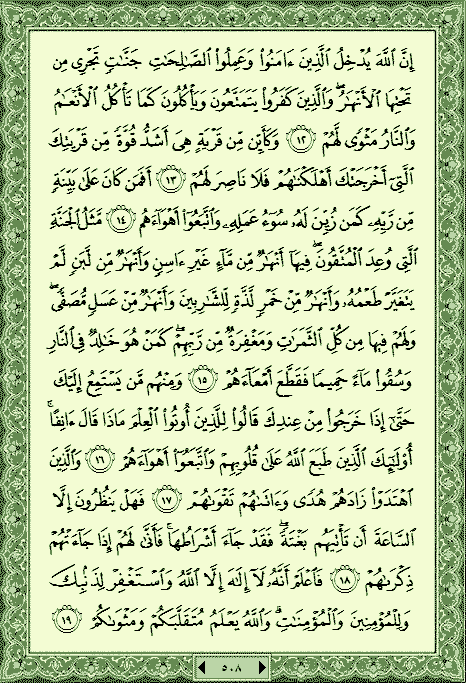 إِنَّ ٱللَّهَ يُدْخِلُ ٱلَّذِينَ ءَامَنُوا۟ وَعَمِلُوا۟ ٱلصَّـٰلِحَـٰتِ جَنَّـٰتٍ تَجْرِى مِن
تَحْتِهَا ٱلْأَنْهَـٰرُ ۖ وَٱلَّذِينَ كَفَرُوا۟ يَتَمَتَّعُونَ وَيَأْكُلُونَ كَمَا تَأْكُلُ ٱلْأَنْعَـٰمُ
وَٱلنَّارُ مَثْوًى لَّهُمْ ١٢ وَكَأَيِّن مِّن قَرْيَةٍ هِىَ أَشَدُّ قُوَّةً مِّن قَرْيَتِكَ
ٱلَّتِىٓ أَخْرَجَتْكَ أَهْلَكْنَـٰهُمْ فَلَا نَاصِرَ لَهُمْ ١٣ أَفَمَن كَانَ عَلَىٰ بَيِّنَةٍ
مِّن رَّبِّهِۦ كَمَن زُيِّنَ لَهُۥ سُوٓءُ عَمَلِهِۦ وَٱتَّبَعُوٓا۟ أَهْوَآءَهُم ١٤ مَّثَلُ ٱلْجَنَّةِ
ٱلَّتِى وُعِدَ ٱلْمُتَّقُونَ ۖ فِيهَآ أَنْهَـٰرٌ مِّن مَّآءٍ غَيْرِ ءَاسِنٍ وَأَنْهَـٰرٌ مِّن لَّبَنٍ لَّمْ
يَتَغَيَّرْ طَعْمُهُۥ وَأَنْهَـٰرٌ مِّنْ خَمْرٍ لَّذَّةٍ لِّلشَّـٰرِبِينَ وَأَنْهَـٰرٌ مِّنْ عَسَلٍ مُّصَفًّى ۖ
وَلَهُمْ فِيهَا مِن كُلِّ ٱلثَّمَرَٰتِ وَمَغْفِرَةٌ مِّن رَّبِّهِمْ ۖ كَمَنْ هُوَ خَـٰلِدٌ فِى ٱلنَّارِ
وَسُقُوا۟ مَآءً حَمِيمًا فَقَطَّعَ أَمْعَآءَهُمْ ١٥ وَمِنْهُم مَّن يَسْتَمِعُ إِلَيْكَ
حَتَّىٰٓ إِذَا خَرَجُوا۟ مِنْ عِندِكَ قَالُوا۟ لِلَّذِينَ أُوتُوا۟ ٱلْعِلْمَ مَاذَا قَالَ ءَانِفًا ۚ
أُو۟لَـٰٓئِكَ ٱلَّذِينَ طَبَعَ ٱللَّهُ عَلَىٰ قُلُوبِهِمْ وَٱتَّبَعُوٓا۟ أَهْوَآءَهُمْ ١٦ وَٱلَّذِينَ
ٱهْتَدَوْا۟ زَادَهُمْ هُدًى وَءَاتَىٰهُمْ تَقْوَىٰهُمْ ١٧ فَهَلْ يَنظُرُونَ إِلَّا
ٱلسَّاعَةَ أَن تَأْتِيَهُم بَغْتَةً ۖ فَقَدْ جَآءَ أَشْرَاطُهَا ۚ فَأَنَّىٰ لَهُمْ إِذَا جَآءَتْهُمْ
ذِكْرَىٰهُمْ ١٨ فَٱعْلَمْ أَنَّهُۥ لَآ إِلَـٰهَ إِلَّا ٱللَّهُ وَٱسْتَغْفِرْ لِذَنۢبِكَ
وَلِلْمُؤْمِنِينَ وَٱلْمُؤْمِنَـٰتِ ۗ وَٱللَّهُ يَعْلَمُ مُتَقَلَّبَكُمْ وَمَثْوَىٰكُمْ ١٩
٥٠٨